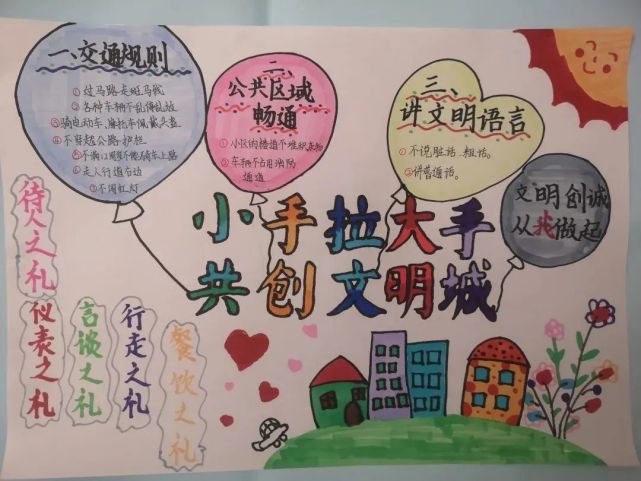 一、交通规则
①过马路走斑马线
②各种车辆不乱停乱放
③骑电动车、摩托车佩戴头盔
④不穿越公路护栏
⑤不满12周岁不能骑车上路
⑥走人行道右边
⑦不闯红灯
二、
公共区域
畅通
①小区的楼道不堆积杂物
②车辆不占用消防
通道
三、
讲文明语言
①不说脏话、粗话。
②讲普通话。
文明创诚
从我做起
小手拉大手
共创文明城
待人之礼
仪表之礼
言谈之礼
行走之礼
餐饮之礼